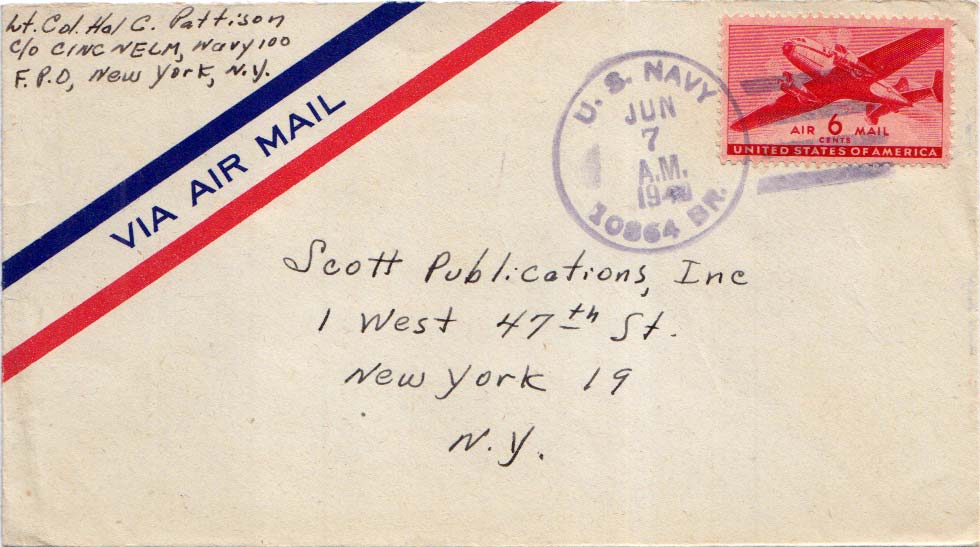 Lt. Col. Hal C. Pattison
c/o CINCNELM, Navy 100
F.P.O, New York, N.Y.
VIA AIR MAIL
U. S. NAVY
JUN
7
A.M.
10864 BR.
AIR 6 MAIL
CENTS
UNITED STATES OF AMERICA
Scott Publications, Inc
1 West 47th St.
New York 19
N.Y.